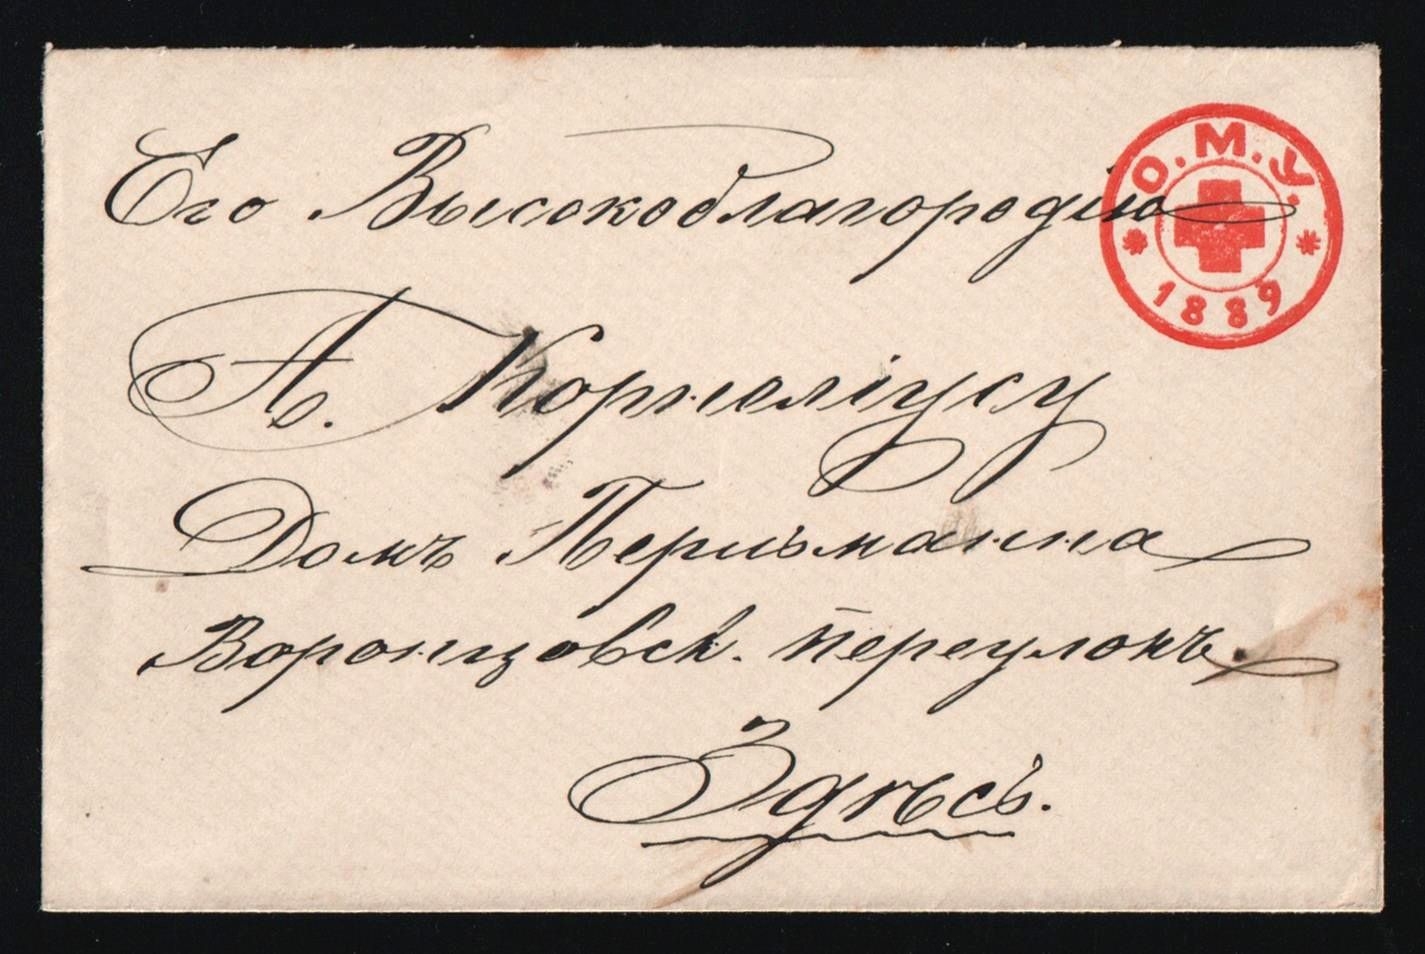 Его Высокоблагородію
О.М.У.
1889
А. Корнеліусу
Домъ Перльманна
Воронцовск. переулокъ.
Здѣсь.